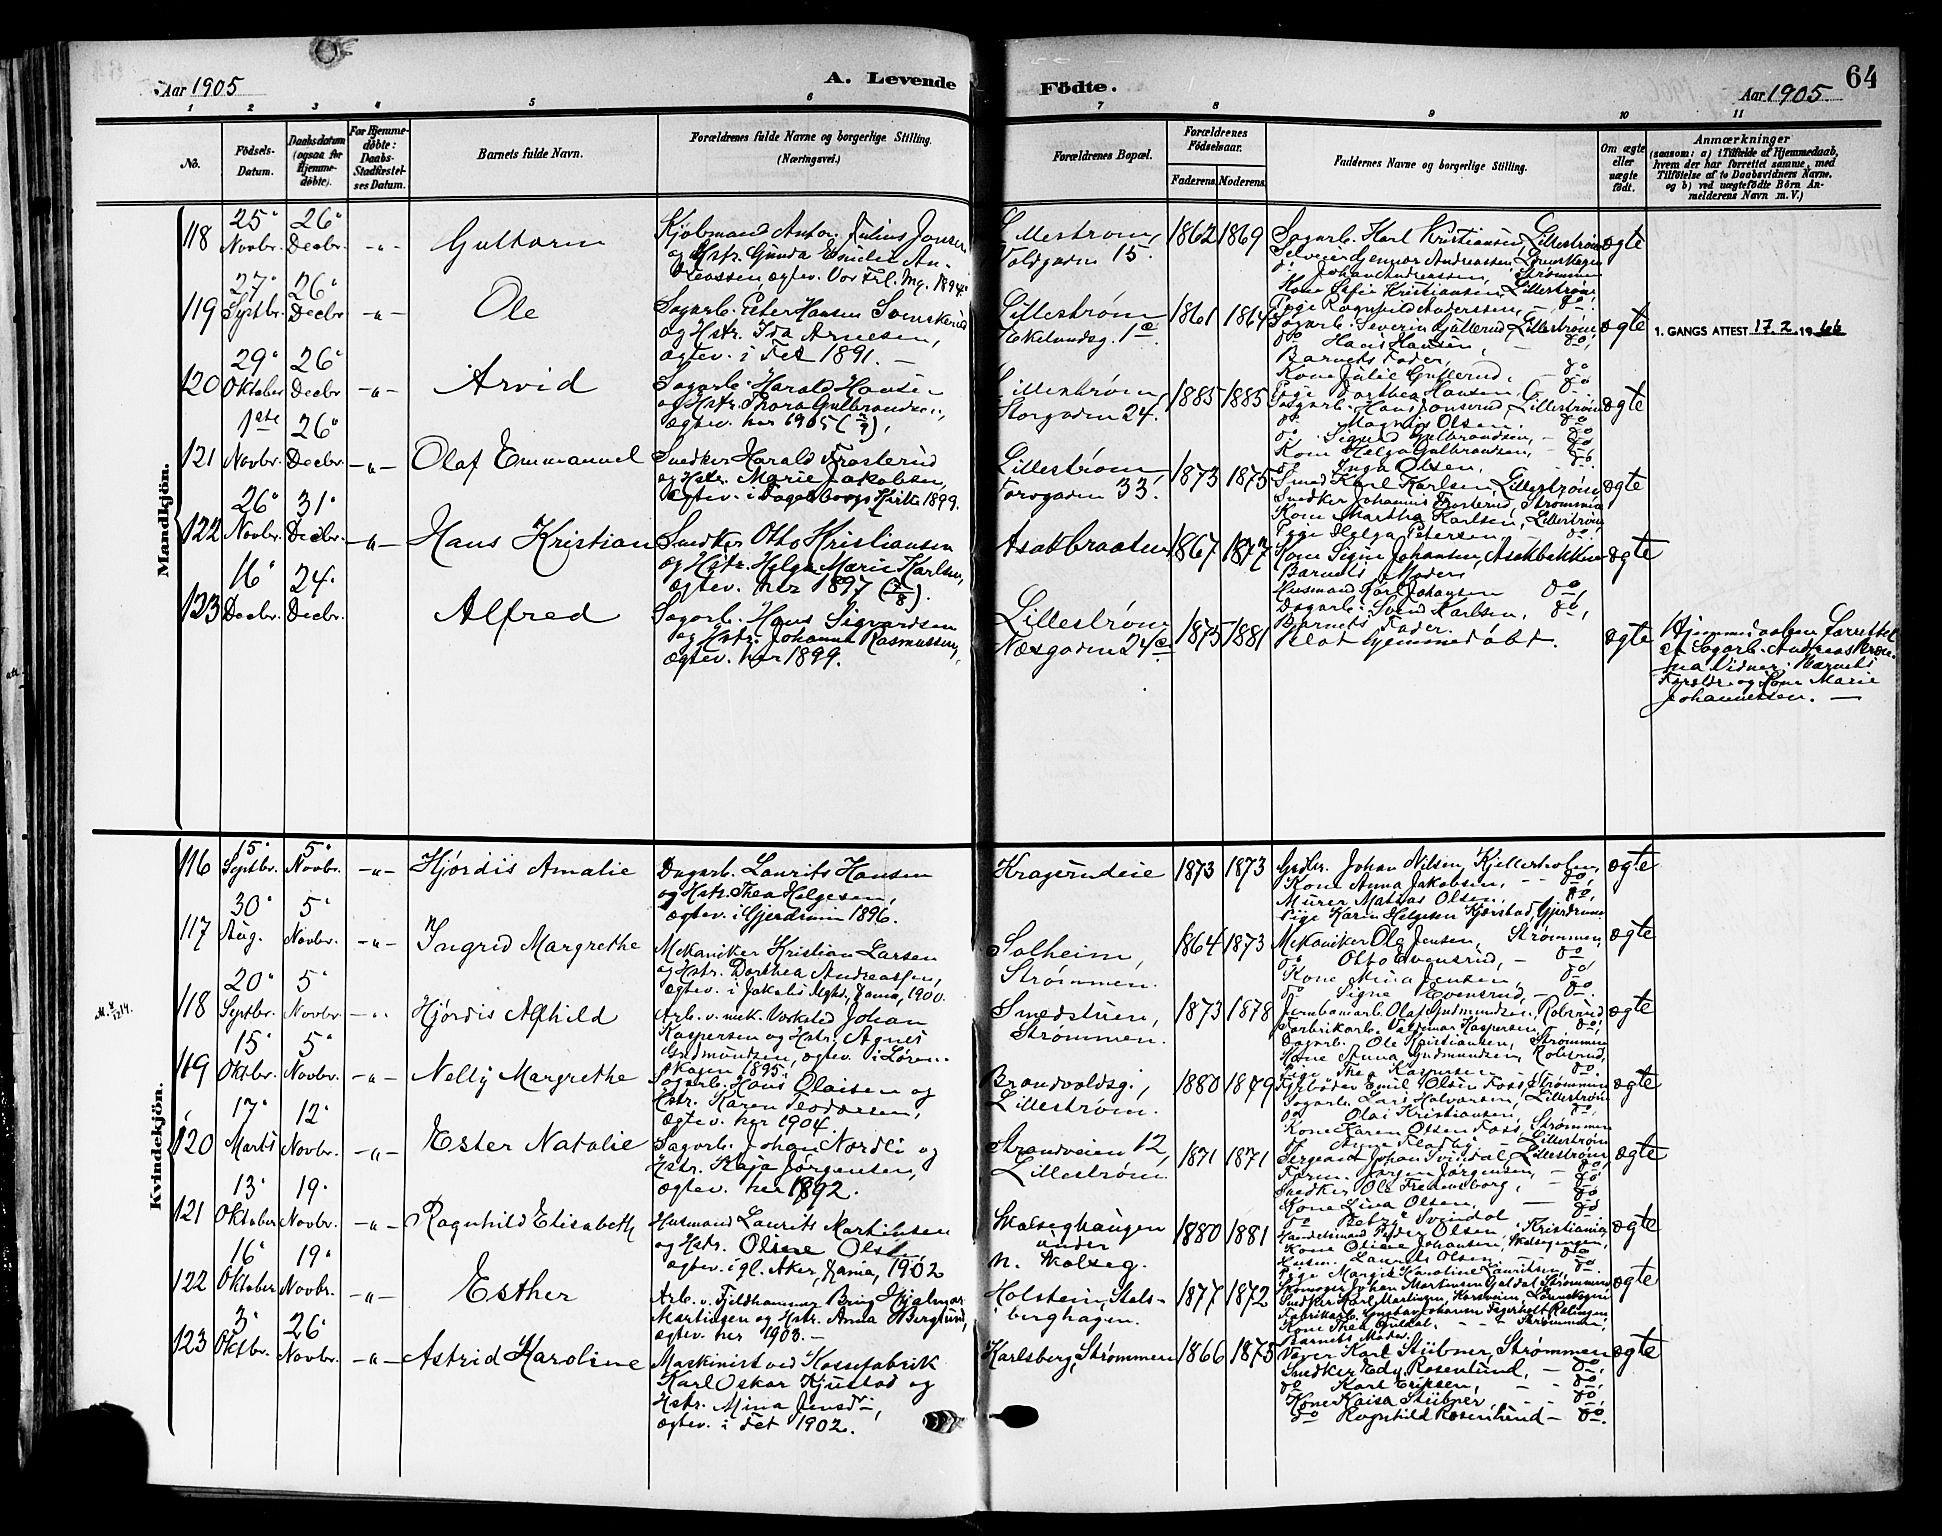 Aar 1905
A. Levende
Födte.
Aar 1905.
64
1 2 3 4 5 6 7 8 9 10 11
No.
Födsels-
Datum.
Daabsdatum
(ogsaa for
Hjemme-
döbte).
For Hjemme-
döbte:
Daabs-
Stadfæstel-
ses Datum.
Barnets fulde Navn.
Forældrenes fulde Navne og borgerlige Stilling.
(Næringsvei.)
Forældrenes Bopæl.
Forældrenes
Födselsaar.
Faderens.
Moderens.
Faddernes Navne og borgerlige Stilling.
Om ægte
eller
uægte
födt.
Anmærkninger
(saasom: a) i Tilfælde af Hjemmedaab,
hvem der har forrettet samme, med
Tilföielse af to Daabsvidners Navne,
og b) ved uægtefödte Börn An-
melderens Navn m. V.)
Mandkjön.
118
25'
Novbr.
26'
Decbr.
-"-
Guttorm
Kjøbmand Anton Julius Jensen
og Hstr. Gunda Emilie An-
dreassen, ægtev. Vor Frl. Mg. 1894.
Lillestrøm,
Voldgaden 15.
1862
1869
Sagarb. Karl Kristiansen, Lillestrøm
Gunnar Andreassen, Lørenskogen
do Johan Andreassen, Strømmen
Kone Sofie Kristiansen, Lillestrøm,
Pige Ragnhild Anderssen, — do.
ægte
119
27'
Septbr.
26'
Decbr.
-"-
Ole
Sagarb. Peter Hansen Svenskerud
og Hstr. Ida Arnesen,
ægtev. i Fet 1891. —
Lillestrøm,
Ekelundsg. 1e.
1861
1864
Sagarb. Severin Gulterud, Lillestrøm,
do Hans Hansen, — do,
Barnets Fader,
Kone Julie Gulterud, — do
Pige Dorthea Hansen, — do
ægte
1. GANGS ATTEST 17.2.1966
120
29'
Oktober
26'
Decbr
-"-
Arvid
Sagarb. Harald Hansen
og Hstr. Thora Gulbrandsen,
ægtev. her 1905
Lillestrøm
Storgaden 24.
1885
1885
Sagarb. Hans Jonserud, Lillestrøm
do Magnus Olsen, do
do Sigurd Gulbrandsen, — do
Kone Helga Gulbrandsen, — do
do Inga Olsen, do.
ægte
121
1ste
Novbr.
26'
Decbr.
-"-
Olaf Emmanuel
Snedker Harald Frosterud
og Hstr. Marie Jakobsen,
ægtev. i Fagerborgs Kirke 1899.
Lillestrøm,
Torvgaden 33.
1873
1875
Smed Karl Karlsen, Lillestrøm,
Snedker Johannes Frosterud, Strømmen
Kone Martha Karlsen, Lillestrøm
Pige Helga Petersen — do,
ægte
122
26'
Novbr.
31'
Decbr.
-"-
Hans Kristian
Snedker Otto Kristiansen
og Hstr. Helga Marie Karlsen,
ægtev. her 1897
Asakbraaten
1867
1877
Kone Signe Johansen, Asakbakken
Barnets Moder,
Husmand Karl Johansen do
Dagarb. Svend Karlsen, do,
Barnets Fader.
ægte
123
16'
Decbr.
24'
Decbr.
Alfred
Sagarb. Hans Sigvardsen
og Hstr. Johanne Rasmussen,
ægtev. her 1899.
Lillestrøm
Næsgaden 24c
1875
1881
Blot hjemmedøbt.
ægte
Hjemmedaaben forrettet
af Sagarb. Andreas
Vidner: Barnets
Forældre og Kone Marie
Johannessen. —
Kvindekjön.
116
15'
Septbr.
5'
Novbr.
-"-
Hjørdis Amalie
Dagarb. Laurits Hansen
og Hstr. Thea Helgesen,
ægtev. i Gjerdrum 1896.
Kragerudeie
1873
1873
Johan Nilsen, Kjellerholen,
Kone Anna Jakobsen, — do,
Murer Mathias Olsen, do,
Pige Karen Helgesen Kjærstad, Gjerdrum
ægte
117
30'
Aug.
5'
Novbr.
-"-
Ingrid Margrethe
Mekaniker Kristian Larsen
og Hstr. Dorthea Andreassen,
ægtev. i Jakobs Mghd., Xania, 1900.
Solheim,
Strømmen.
1864
1873
Mekaniker Ole Jensen, Strømmen,
do Otto Evensrud, — do
Kone Mina Jensen — do,
do Signe Evensrud, — do.
ægte
118
20'
Septbr.
5'
Novbr.
Hjørdis Alfhild
Arb. v. mek. Værksted Johan
Kaspersen og Hstr. Agnes
Gudmundsen, ægtev. i Løren-
skogen 1895.
Smedstuen,
Strømmen.
1873
1878
Jernbanearb. Olaf Gudmundsen, Robsrud
Fabrikarb. Valdemar Kaspersen, do,
Dagarb. Ole Kristiansen, Strømmen
Kone Anna Gudmundsen, Robsrud,
Pige Thea Kaspersen do.
ægte
119
15'
Oktbr.
5'
Novbr.
-"-
Nelly Margrethe
Sagarb. Hans Olaisen og
Hstr. Karen Teodorsen,
ægtev. her 1904.
Brandvoldsg.,
Lillestrøm.
1880
1879
Fyrbøder Emil Olsen Foss, Strømmen
Sagarb. Lars Halvorsen, Lillestrøm
do Olai Kristiansen, do,
Kone Karen Olsen Foss, Strømmen
do Anne Fladby — Lillestrøm
ægte
120
17'
Marts
12'
Novbr.
-"-
Ester Natalie
Sagarb. Johan Nordli og
Hstr. Kaja Jørgensen,
ægtev. her 1892.
Strandveien 12,
Lillestrøm.
1871
1871
Sergeant Johan Svindal, Lillestrøm,
Jørgen Jørgensen, — do,
Snedker Ole Fredensborg, — do
Kone Lina Olsen, — do
do Betzy Svindal — do.
ægte
121
13'
Oktober
19'
Novbr.
-"-
Ragnhild Elisabeth
Husmand Laurits Martinsen
og Hstr. Oline Olsen,
ægtev. i gl. Aker, Xania, 1902
Skolseghaugen
under
n. Skolseg.
1880
1881
Handelsmand Peder Olsen, Kristiania,
Kone Oline Johansen, Skolseghaugen,
Husm. Laurits Olsen do
Pige Margit Karoline Lauritsen, do.
ægte
122
16'
Oktober
19'
Novbr.
-"-
Esther
Arb. v. Fjeldhammer Brug Hjalmar
Martinsen og Hstr. Anna Berglund,
ægtev. her 1903. —
Holstein, Stals-
berghagen.
1877
1872
Skomager Johan Martinsen Guldal, Strømmen
Snedker Karl Martinsen, Lørenskogen
Fabrikarb. Gustav Johansen Fagerholt, Rælingen,
Kone Thea Guldal, — Strømmen,
Barnets Moder.
ægte
123
3'
Oktbr.
26'
Novbr.
-"-
Astrid Karoline
Maskinist ved Kassefabrik
Karl Oskar Kjustad og
Hstr. Mina Jensdr.,
ægtev. i Fet 1902.
Karlsberg, Strømmen
1866
1875
Væver Karl Stübner, Strømmen
Snedker Edv. Rosenlund, — do,
do Karl Eriksen, — do,
Kone Kaisa Stübner, — do
do Ragnhild Rosenlund — do.
ægte